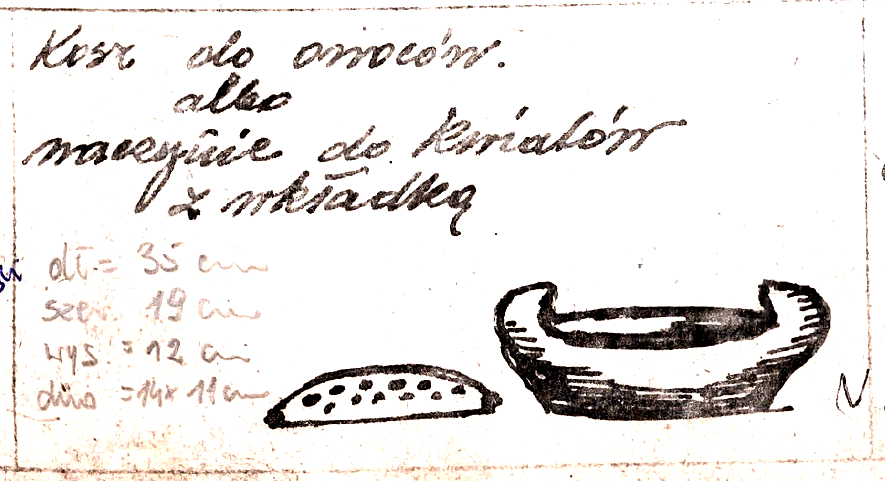 Kosz do owoców.
albo
naczynie do kwiatów
z wkładką
dł = 35 cm
szer. 19 cm
wys = 12 cm
dno = 14x11 cm